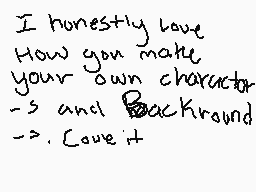 I honestly Love
How you make
your own charactor
-s and Backround
-s. Love it